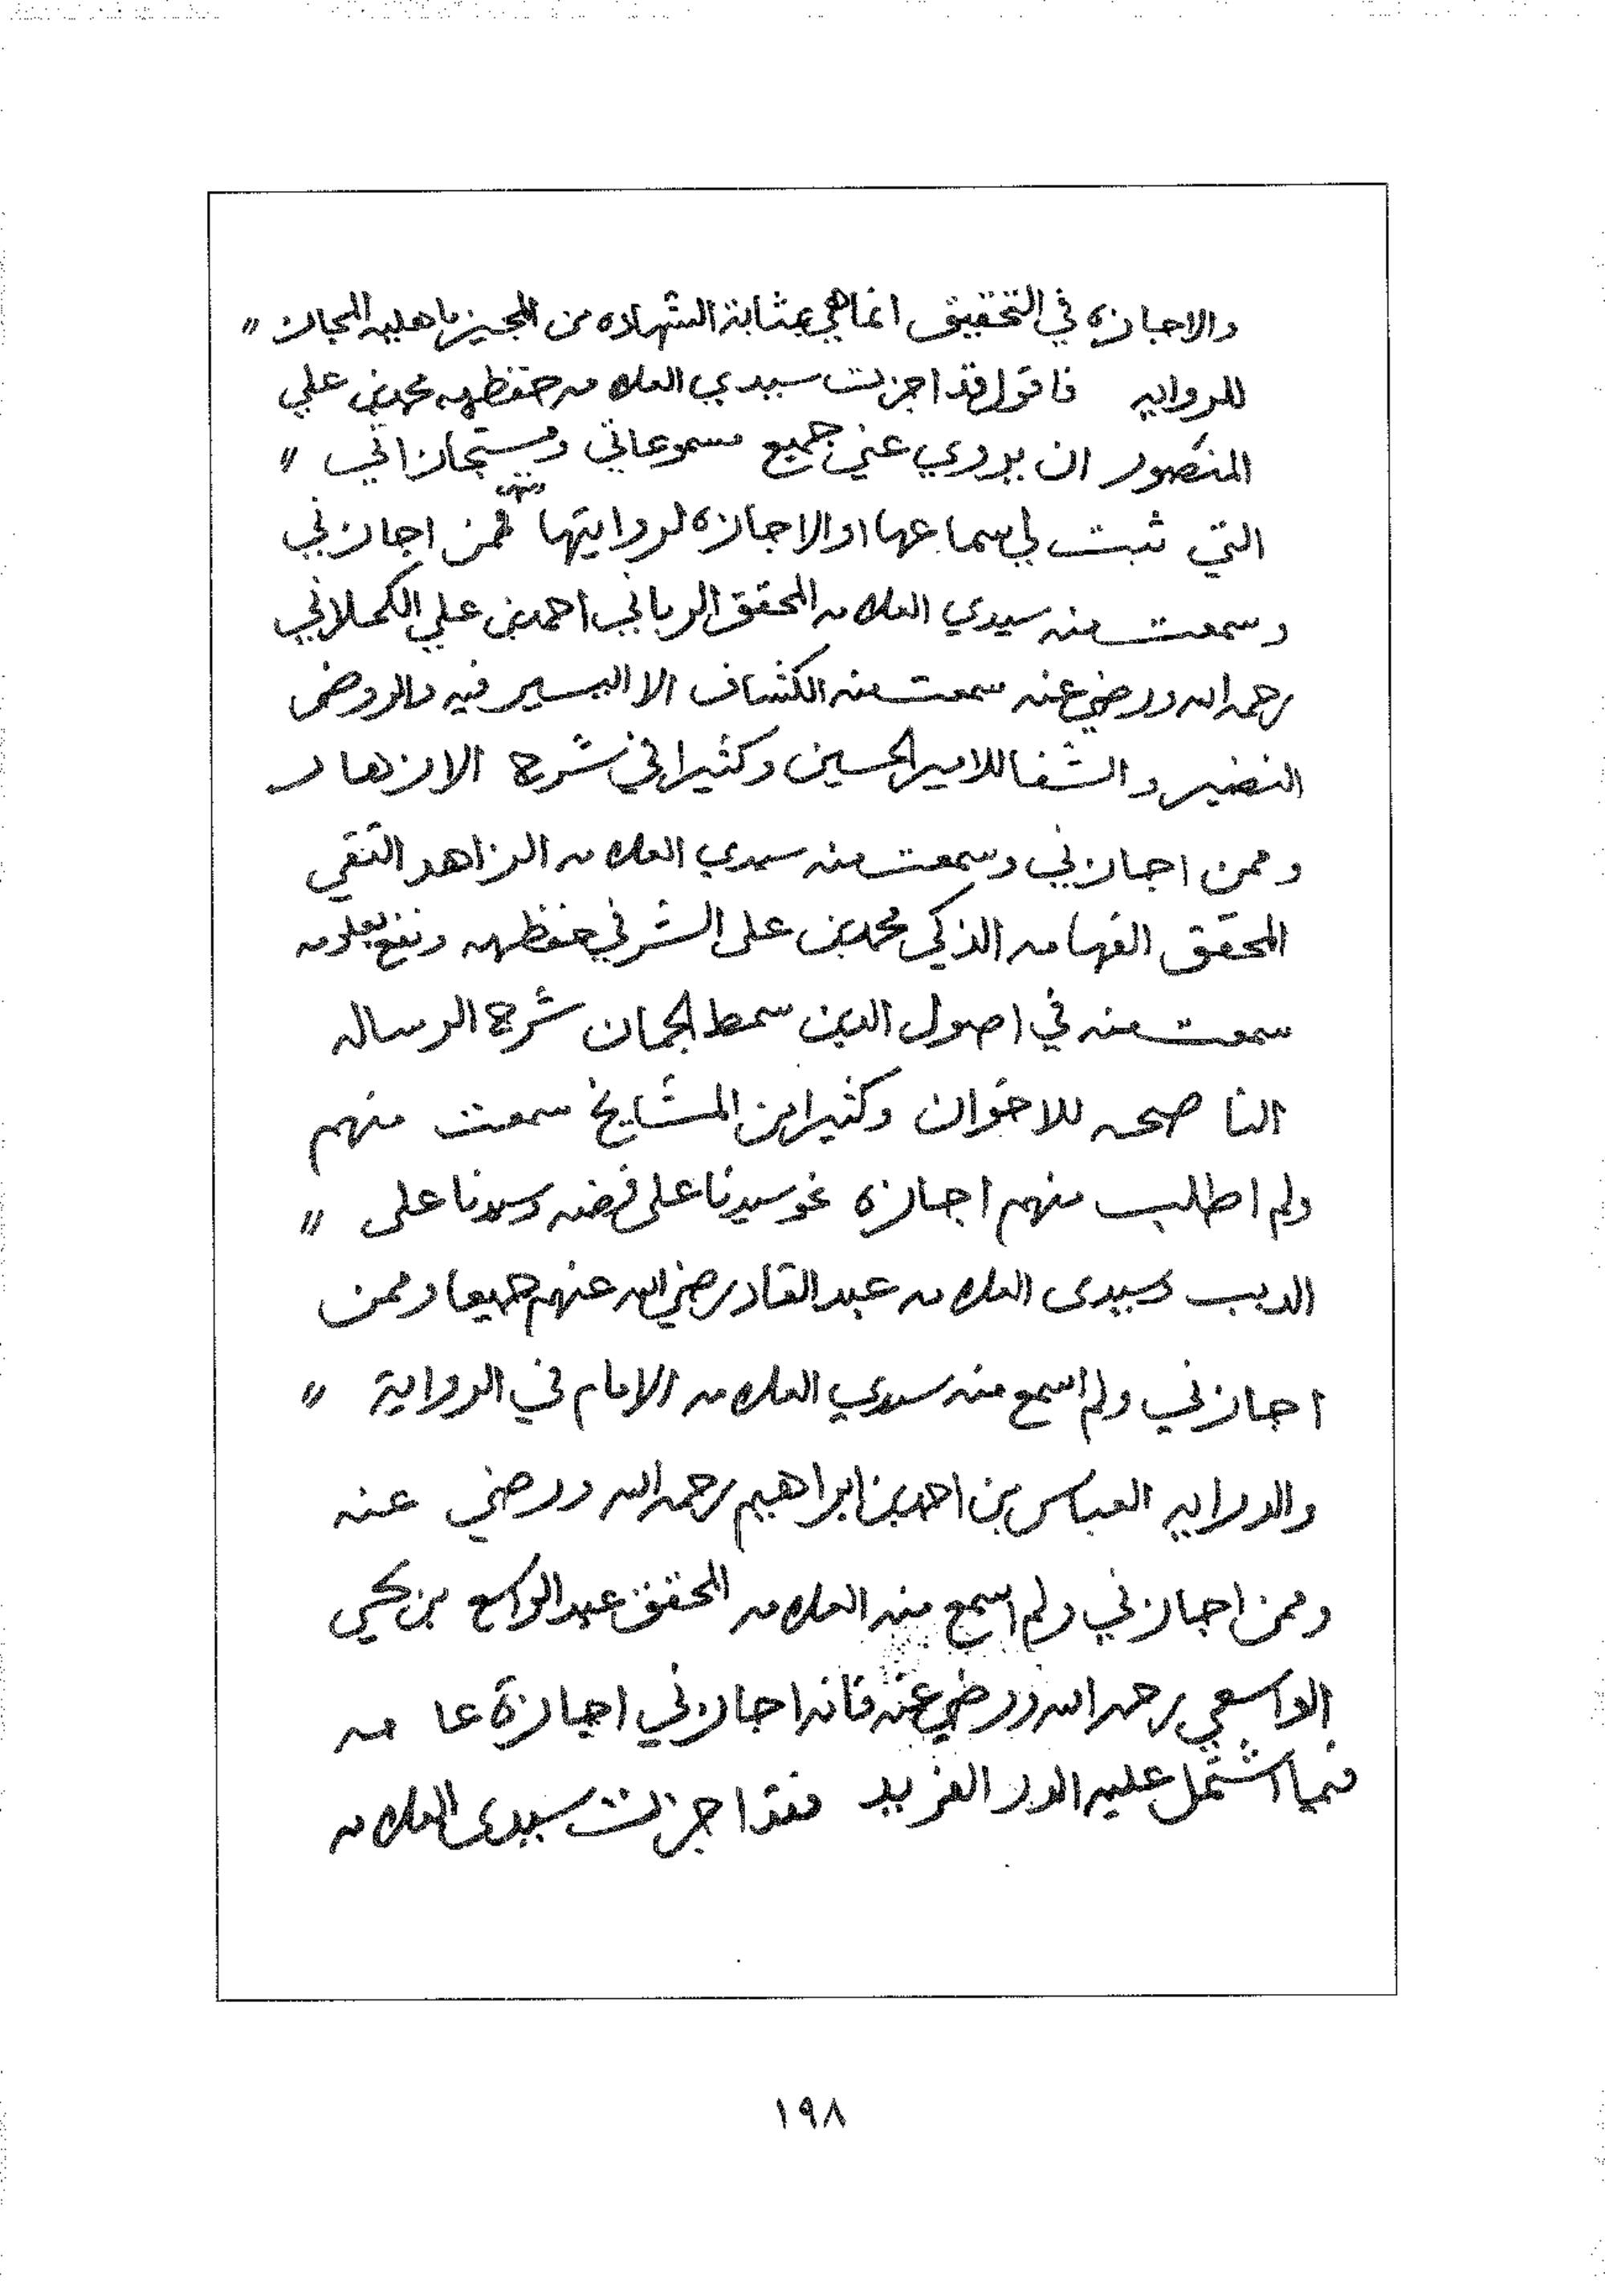 والاجازه في التحقيق انما هي بمثابة الشهاده من المجيز باهليه المجاز "
للروايه فاقول قد اجزت سيدي العلامه حفظه محمد بن علي
المنصور ان يروي عني جميع مسموعاتي ومستجازاتي "
التي ثبت لي سماعها او الاجازه لروايتها فمن اجازني
وسمعت منه سيدي العلامه المحقق الرباني احمد بن علي الكحلاني
رحمه الله ورضي عنه سمعت منه الكشاف الا اليسير فيه والروض
النضير والشفا للامير الحسين وكثيرا في شرح الازهار
وممن اجازني وسمعت منه سيدي العلامه الزاهد التقي
المحقق الفهامه الذكي محمد بن على الشرفي حفظه ونفع بعلومه
سمعت منه في اصول الدين سمط الجمان شرح الرساله
الناصحه للاخوان وكثيرا من المشايخ سمعت منهم
ولم اطلب منهم اجازه نحو سيدنا على فضه وسيدنا على "
الديب وسيدى العلامه عبد القادر رضي الله عنهم جميعا وممن
اجازني ولم اسمع منه سيدي العلامه الامام في الرواية "
والدرايه العباس بن احمد بن ابراهيم رحمه الله ورضي عنه
وممن اجازني ولم اسمع منه العلامه المحقق عبد الواسع بن يحيي
الواسعي رحمه الله ورضي عنه فانه اجازني اجازة عامه
فيما اشتمل عليه الدر الفريد فقد اجزت سيدى العلامه
١٩٨